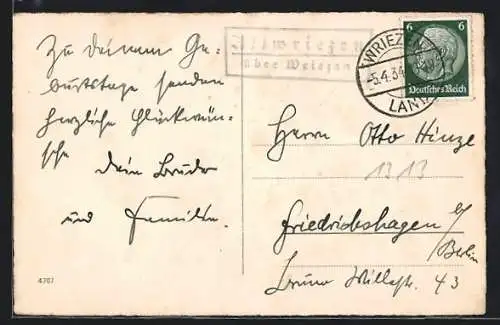 Zu deinem Ge-
burtstage senden
herzliche Glückwün-
sche dein Bruder
und Familie.
4707
Altwriezen
über Wriezen
WRIEZEN
-5.4.34
LAND
6 6
Deutsches Reich
Herrn Otto Hinze
1313
Friedrichshagen b/
Berlin
Bruno Willestr. 43